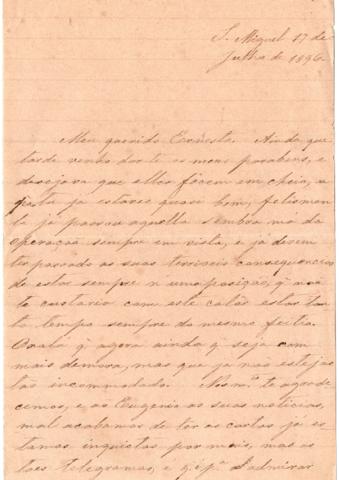 S. Miguel 17 de
Julho de 1896.
Meu querido Ernesto. Ainda que
tarde venho dar-te os meus parabens, e
desejava que elles fôcem em cheio, 
 já estares quasi bom, felismen
te já passou aquella sombra má da
operação sempre em vista, e já devem
ter passado as suas terriveis consequencias
de estar sempre n'uma posição, q'
te custaria com este calor estar tan
to tempo sempre do mesmo feitio.
Oxalá q' agora ainda q' seja com
mais demora, mas que já não estejas
tão incommodado. te agrade
cemos, e ao Eugenio as suas noticias,
mal acabamos de lêr as cartas já es
tamos inquietos por mais, mas os
taes telegramas, e q' é p.ª admirar